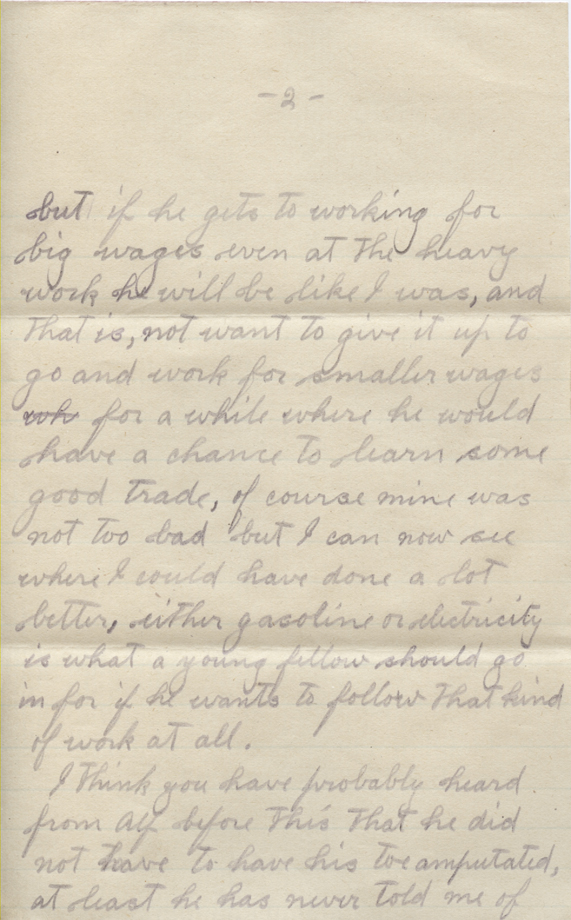 - 2 -
but if he gets to working for
big wages even at the heavy
work he will be like I was, and
that is, not want to give it up to
go and work for smaller wages
wh for a while where he would
have a chance to learn some
good trade, of course mine was
not too bad but I can now see
where I could have done a lot
better, either gasoline or electricity
is what a young fellow should go
in for if he wants to follow that kind
of work at all.
I think you have probably heard
from Alf before this that he did
not have to have his toe amputated,
at least he has never told me of